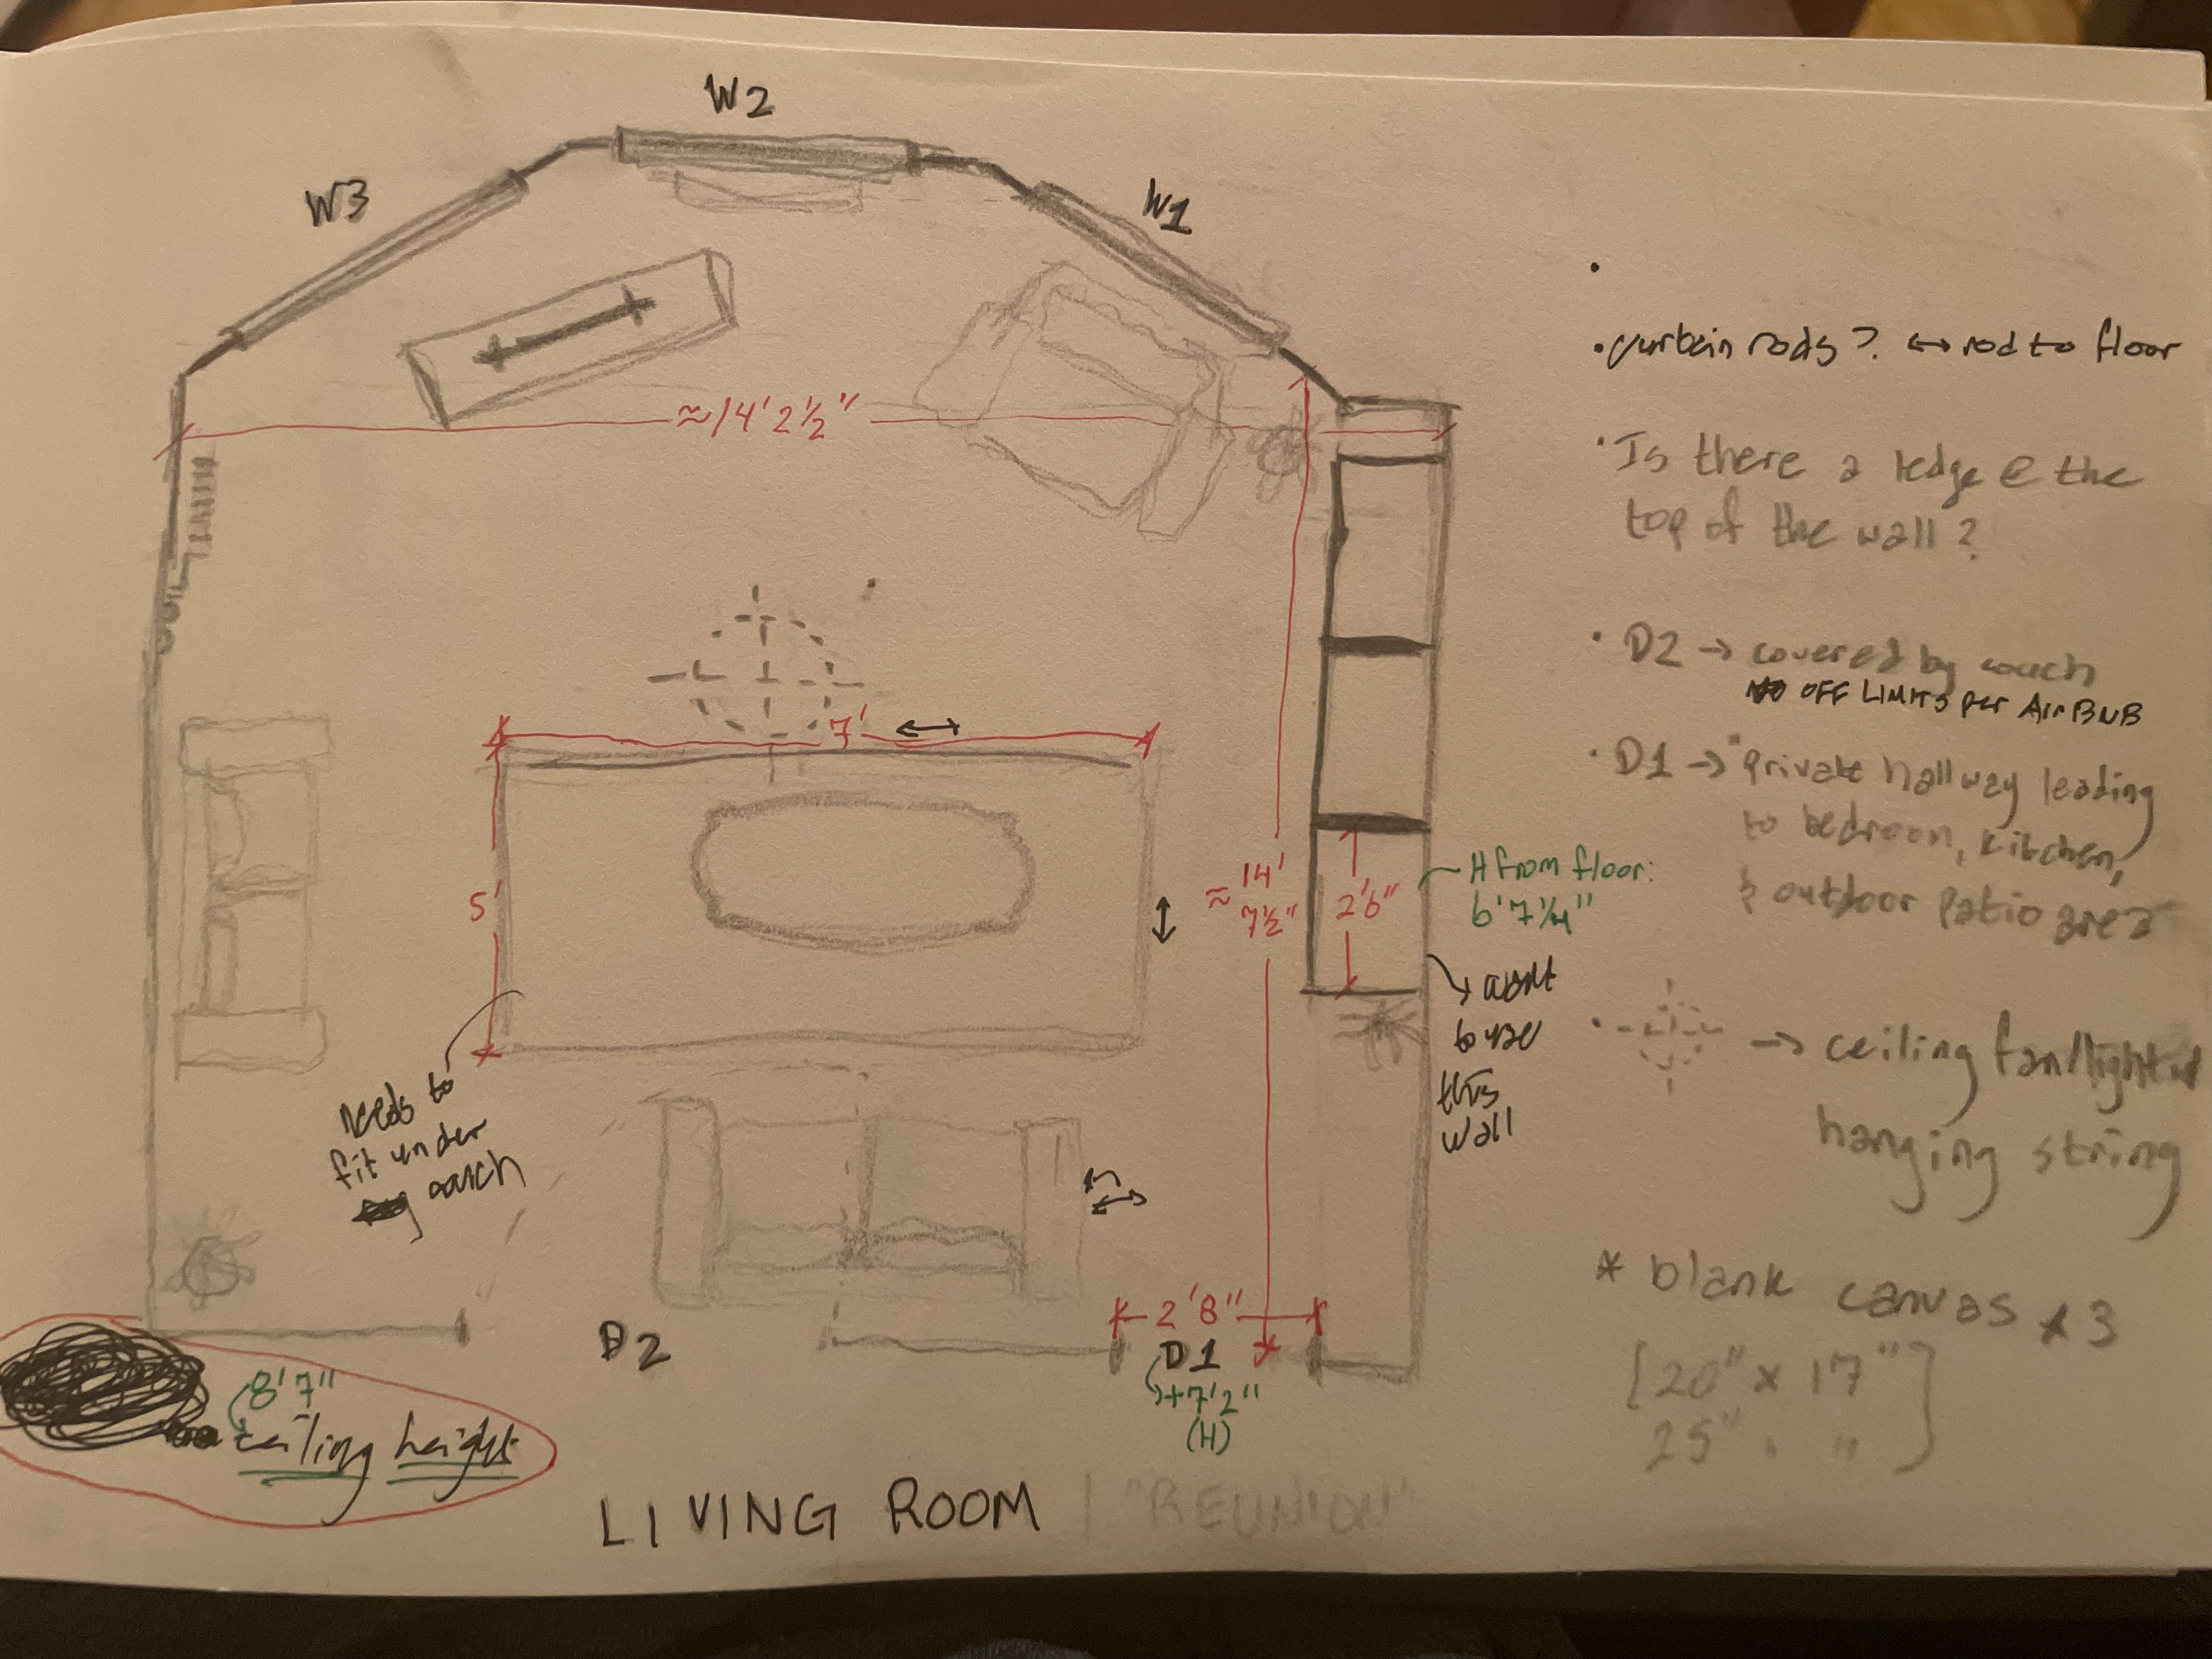 W2
W3
W1
≈14' 2½"
7'
5'
≈ 14'
7½"
2'6"
H from floor:
6'7¼"
want
to use
this
wall
needs to
fit under
couch
2'8"
D2
D1
+7'2"
(H)
8'7"
ceiling height
LIVING ROOM | "REUNION"
•
• curtain rods? ↔ rod to floor
• Is there a ledge @ the
top of the wall?
• D2 → covered by couch
OFF LIMITS per AirBNB
• D1 → "private hallway leading
to bedroom, kitchen,
& outdoor patio area
• → ceiling fan/light w/
hanging string
* blank canvas x 3
[20" x 17"
25" " "]